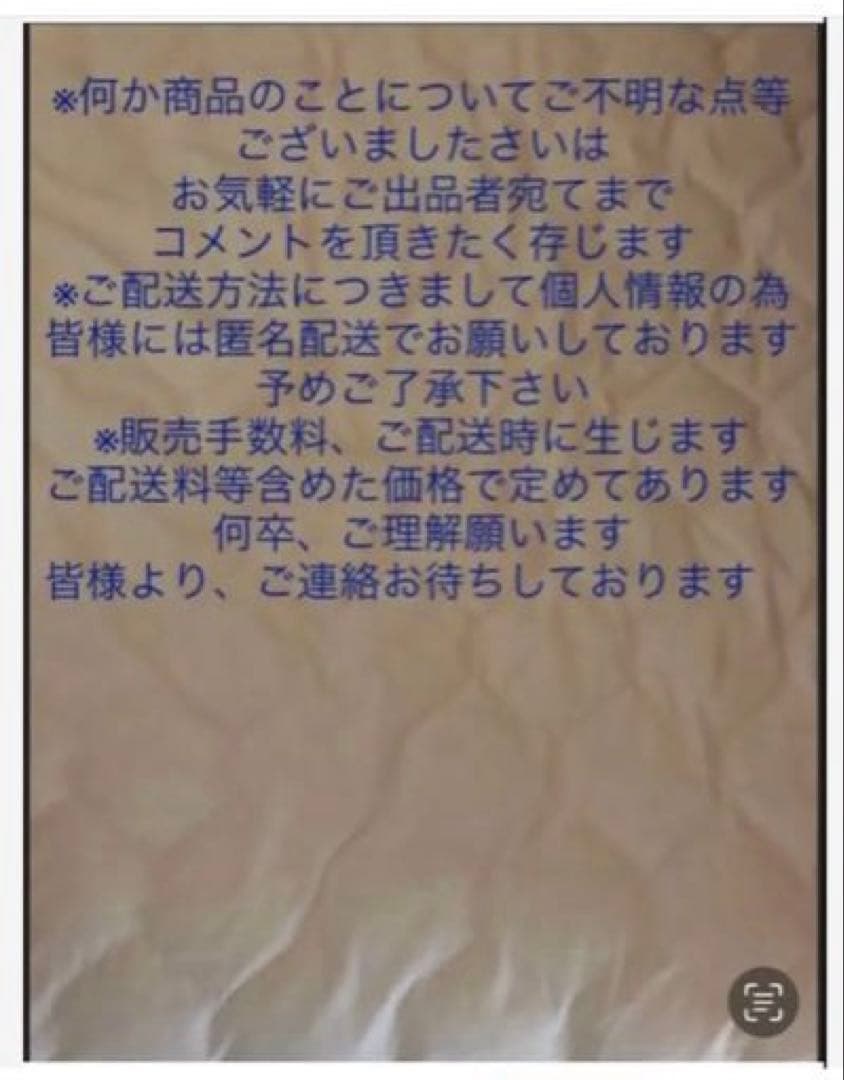 ※何か商品のことについてご不明な点等
ございましたさいは
お気軽にご出品者宛てまで
コメントを頂きたく存じます
※ご配送方法につきまして個人情報の為
皆様には匿名配送でお願いしております
予めご了承下さい
※販売手数料、ご配送時に生じます
ご配送料等含めた価格で定めてあります
何卒、ご理解願います
皆様より、ご連絡お待ちしております